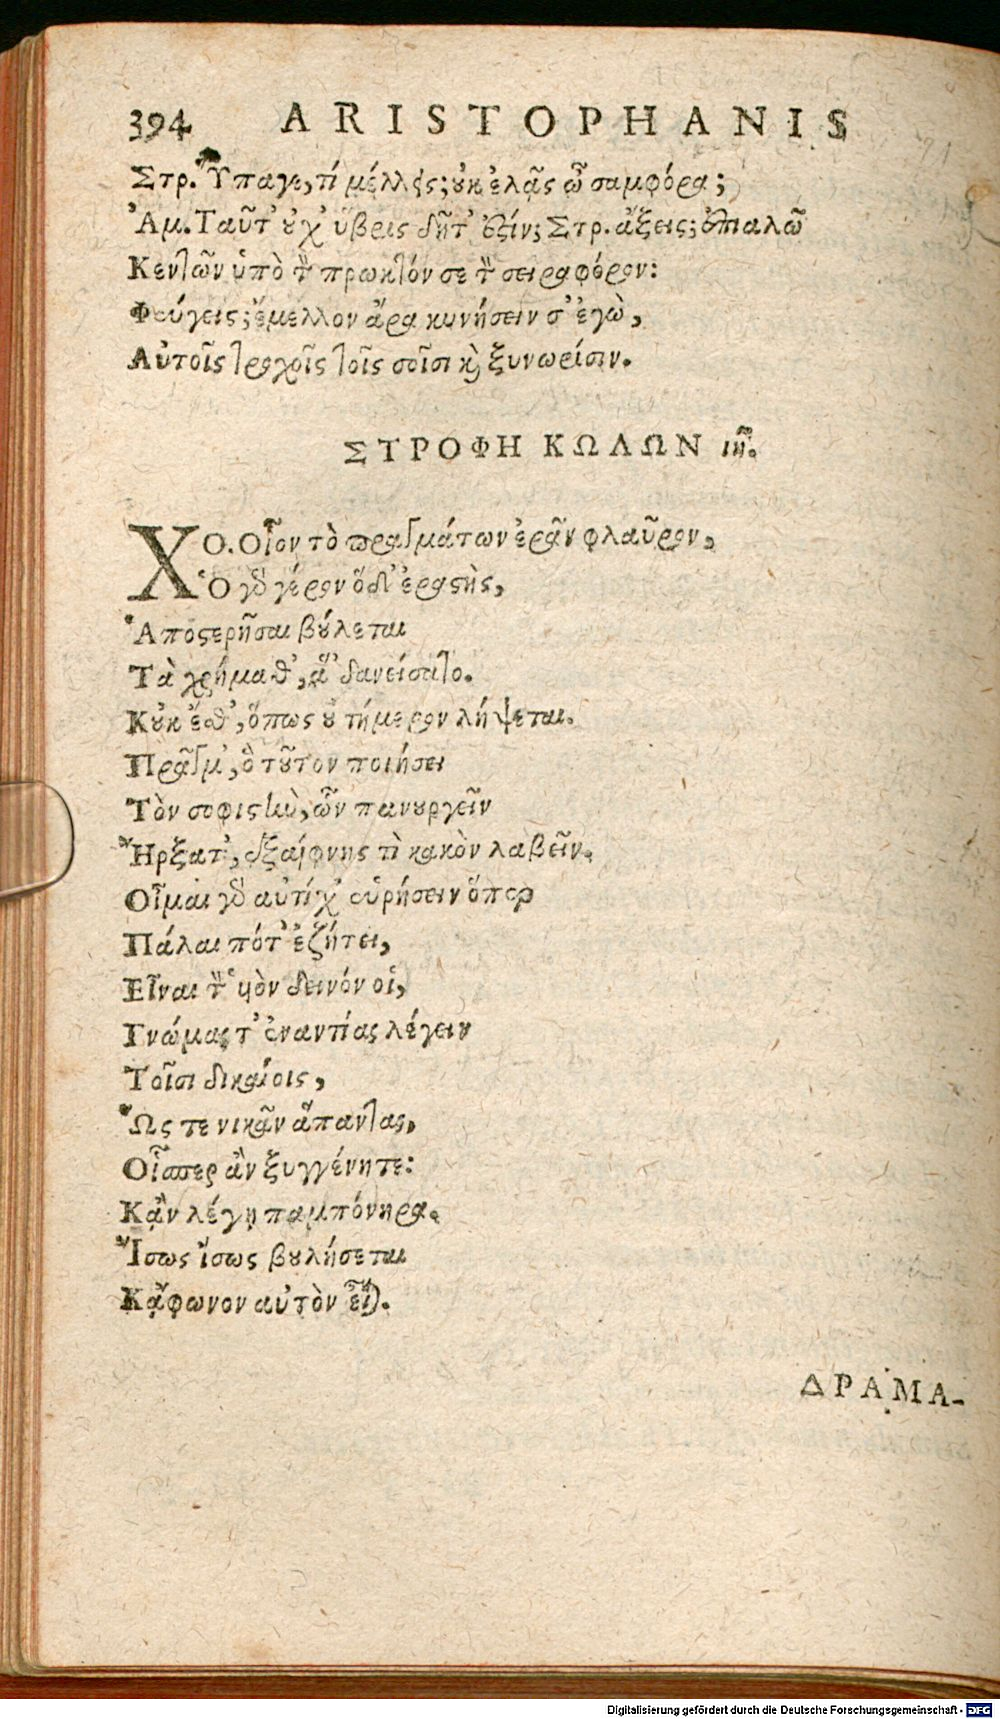 394 ARISTOPHANIS
Στρ. Ὕπαγε, τί μέλλεις; οὐκ ἐλᾷς ὦ σαμφόρα;
Ἀμ. Ταῦτ' οὐχ' ὕβρις δῆτ' ἐστίν; Στρ. ἄξεις; ἐπιαλῶ
Κεντῶν ὑπὸ τὸν πρωκτόν σε τὸν σειραφόρον:
Φεύγεις; ἔμελλον ἄρα κινήσειν σ' ἐγὼ,
Αὐτοῖς τροχοῖς τοῖς σοῖσι καὶ ξυνωρίσιν.
ΣΤΡΟΦΗ ΚΩΛΩΝ ιη.
ΧΟ. Οἷον τὸ πραγμάτων ἐρᾶν φλαῦρον,
Ὁ γὰρ γέρων ὅδ' ἐραστὴς,
Ἀποστερῆσαι βούλεται
Τὰ χρήμαθ', ἃ 'δανείσατο.
Κοὐκ ἔσθ', ὅπως οὐ τήμερον λήψεται.
Πρᾶγμ', ὃ τοῦτον ποιήσει
Τὸν σοφιστὴν, ὧν πανουργεῖν
Ἤρξατ', ἐξαίφνης τὶ κακὸν λαβεῖν.
Οἶμαι γὰρ αὐτίχ' εὑρήσειν ὅπερ
Πάλαι πότ' ἐζήτει,
Εἶναι τὸν υἱὸν δεινόν οἱ,
Γνώμας τ' ἐναντίας λέγειν
Τοῖσι δικαίοις,
Ὥς τε νικᾶν ἅπαντας,
Οἷσπερ ἂν ξυγγένητε:
Κᾂν λέγῃ παμπόνηρα.
Ἴσως ἴσως βουλήσεται
Κᾄφωνον αὐτὸν εἶναι.
ΔΡΑΜΑ-
Digitalisierung gefördert durch die Deutsche Forschungsgemeinschaft - DFG